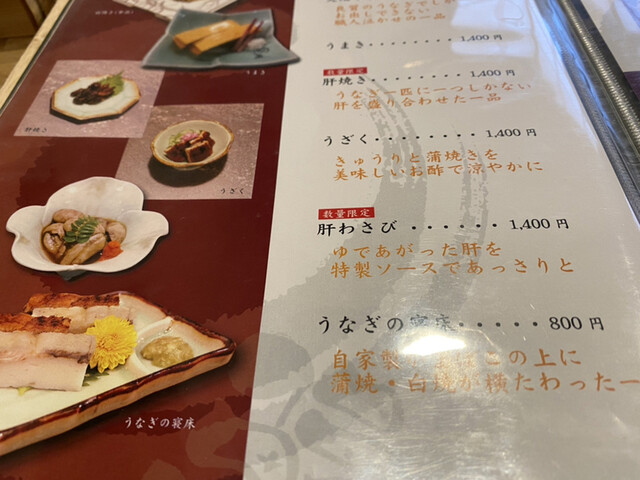 うまき
肝焼き
うざく
うなぎの寝床
良質のうなぎでしか
お出しできない
職人泣かせの一品
うまき・・・・・・・・1,400円
数量限定
肝焼き・・・・・・・・1,400円
うなぎ一匹に一つしかない
肝を盛り合わせた一品
うざく・・・・・・・・1,400円
きゅうりと蒲焼きを
美味しいお酢で涼やかに
数量限定
肝わさび・・・・・・1,400円
ゆであがった肝を
特製ソースであっさりと
うなぎの寝床・・・・・800円
自家製 の上に
蒲焼・白焼が横たわった一